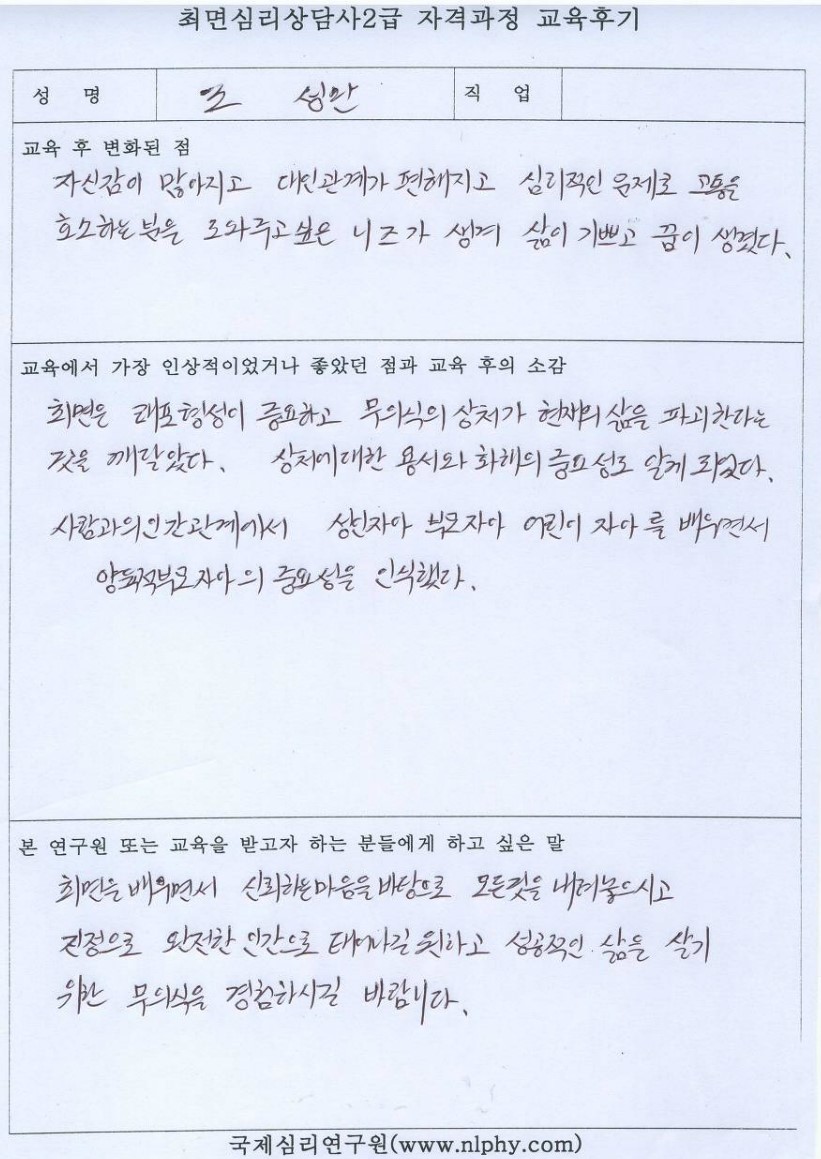 최면심리상담사2급 자격과정 교육후기
성 명 조 성만 직 업
교육 후 변화된 점
자신감이 많아지고 대인관계가 편해지고 심리적인 문제로 고통을
호소하는 분을 도와주고 싶은 니즈가 생겨 삶이 기쁘고 꿈이 생겼다.
교육에서 가장 인상적이었거나 좋았던 점과 교육 후의 소감
최면은 래포형성이 중요하고 무의식의 상처가 현재의 삶을 파괴한다는
것을 깨달았다. 상처에대한 용서와 화해의 중요성도 알게 되었다.
사람과의인간관계에서 성인자아 부모자아 어린이 자아를 배우면서
양육적부모자아의 중요성을 인식했다.
본 연구원 또는 교육을 받고자 하는 분들에게 하고 싶은 말
최면을 배우면서 신뢰하는마음을 바탕으로 모든것을 내려놓으시고
진정으로 완전한 인간으로 태어나길 원하고 성공적인 삶을 살기
위한 무의식을 경험하시길 바랍니다.
국제심리연구원(www.nlphy.com)